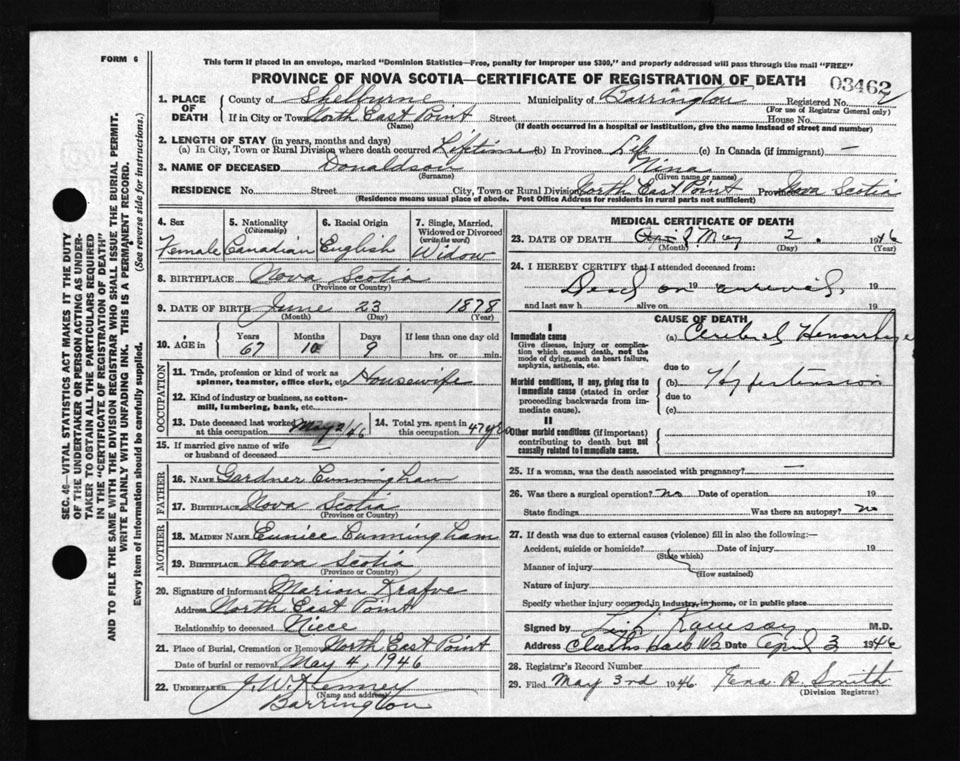 FORM 6
This form if placed in an envelope, marked "Dominion Statistics—Free, penalty for improper use $300," and properly addressed will pass through the mail "FREE"
PROVINCE OF NOVA SCOTIA—CERTIFICATE OF REGISTRATION OF DEATH
03462
1. PLACE OF DEATH
County of Shelburne Municipality of Barrington Registered No.
(For use of Registrar General only)
If in City or Town North East Point Street House No.
(Name) (If death occurred in a hospital or institution, give the name instead of street and number)
2. LENGTH OF STAY (in years, months and days)
(a) In City, Town or Rural Division where death occurred Lifetime (b) In Province Life (c) In Canada (if immigrant) —
3. NAME OF DECEASED Donaldson Nina
(Surname) (Given name or names)
RESIDENCE No. Street City, Town or Rural Division North East Point Province Nova Scotia
(Residence means usual place of abode. Post Office Address for residents in rural parts not sufficient)
4. Sex
Female
5. Nationality
(Citizenship)
Canadian
6. Racial Origin
English
7. Single, Married, Widowed or Divorced
(write the word)
Widow
8. BIRTHPLACE Nova Scotia
(Province or Country)
9. DATE OF BIRTH June 23 1878
(Month) (Day) (Year)
10. AGE in
Years Months Days If less than one day old
67 10 9 hrs. or min.
OCCUPATION
11. Trade, profession or kind of work as spinner, teamster, office clerk, etc. Housewife
12. Kind of industry or business, as cotton-mill, lumbering, bank, etc.
13. Date deceased last worked at this occupation May 2/46
14. Total yrs. spent in this occupation 47 yrs
15. If married give name of wife or husband of deceased —
FATHER
16. NAME Gardner Cunningham
17. BIRTHPLACE Nova Scotia
(Province or Country)
MOTHER
18. MAIDEN NAME Eunice Cunningham
19. BIRTHPLACE Nova Scotia
(Province or Country)
20. Signature of informant Marion Krafve
Address North East Point
Relationship to deceased Niece
21. Place of Burial, Cremation or Removal North East Point
Date of burial or removal May 4, 1946
22. UNDERTAKER J. W. Kenney
(Name and address)
Barrington
MEDICAL CERTIFICATE OF DEATH
23. DATE OF DEATH April May 2. 1946
(Month) (Day) (Year)
24. I HEREBY CERTIFY that I attended deceased from:
Dead on arrival 19
and last saw h alive on 19
CAUSE OF DEATH
I
Immediate cause
Give disease, injury or complication which caused death, not the mode of dying, such as heart failure, asphyxia, asthenia, etc.
(a) Cerebral Hemorrhage
due to
Morbid conditions, if any, giving rise to immediate cause (stated in order proceeding backwards from immediate cause).
(b) Hypertension
due to
(c)
II
Other morbid conditions (if important) contributing to death but not causally related to immediate cause.
25. If a woman, was the death associated with pregnancy? —
26. Was there a surgical operation? no Date of operation 19
State findings Was there an autopsy? no
27. If death was due to external causes (violence) fill in also the following:—
Accident, suicide or homicide? Date of injury 19
(State which)
Manner of injury
(How sustained)
Nature of injury
Specify whether injury occurred in industry, in home, or in public place
Signed by M.D.
Address Date April 3 1946
28. Registrar's Record Number
29. Filed May 3rd 1946 Smith
(Division Registrar)
SEC. 46—VITAL STATISTICS ACT MAKES IT THE DUTY
OF THE UNDERTAKER OR PERSON ACTING AS UNDER-
TAKER TO OBTAIN ALL THE PARTICULARS REQUIRED
IN THE "CERTIFICATE OF REGISTRATION OF DEATH"
AND TO FILE THE SAME WITH THE DIVISION REGISTRAR WHO SHALL ISSUE THE BURIAL PERMIT.
WRITE PLAINLY WITH UNFADING INK. THIS IS A PERMANENT RECORD.
Every item of information should be carefully supplied. (See reverse side for instructions.)